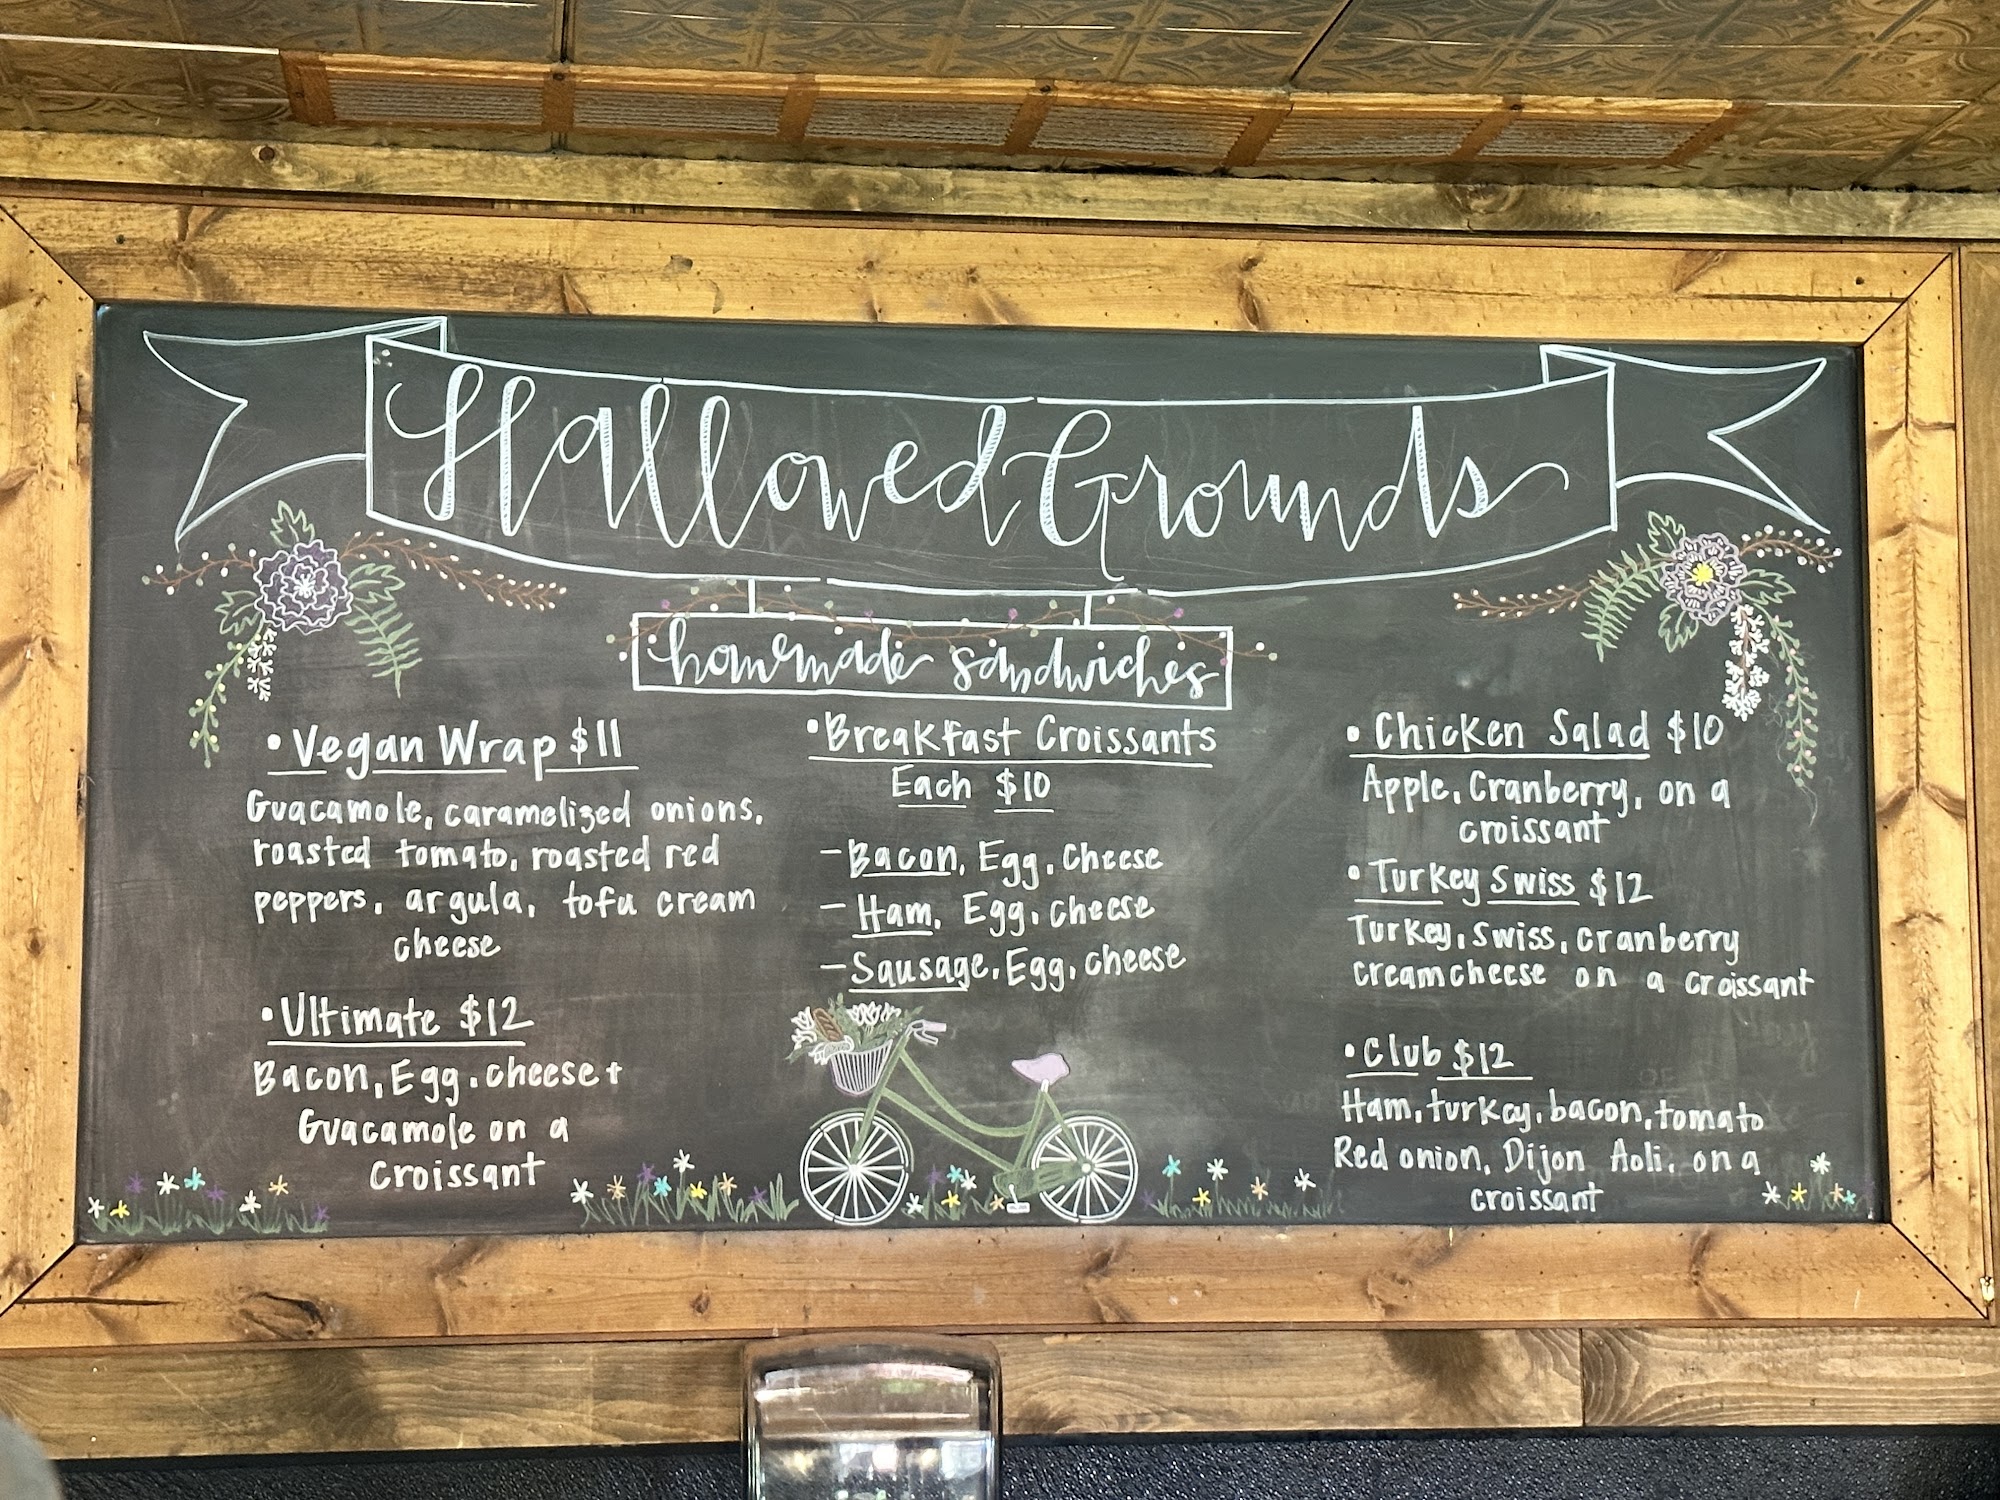 Hallowed Grounds
homemade sandwiches
• Vegan Wrap $11
Guacamole, caramelized onions,
roasted tomato, roasted red
peppers, argula, tofu cream
cheese
• Ultimate $12
Bacon, Egg, cheese +
Guacamole on a
croissant
• Breakfast Croissants
Each $10
- Bacon, Egg, Cheese
- Ham, Egg, cheese
- Sausage, Egg, cheese
• Chicken Salad $10
Apple, Cranberry, on a
croissant
• Turkey Swiss $12
Turkey, Swiss, cranberry
creamcheese on a croissant
• Club $12
Ham, turkey, bacon, tomato
Red onion, Dijon Aoli, on a
croissant